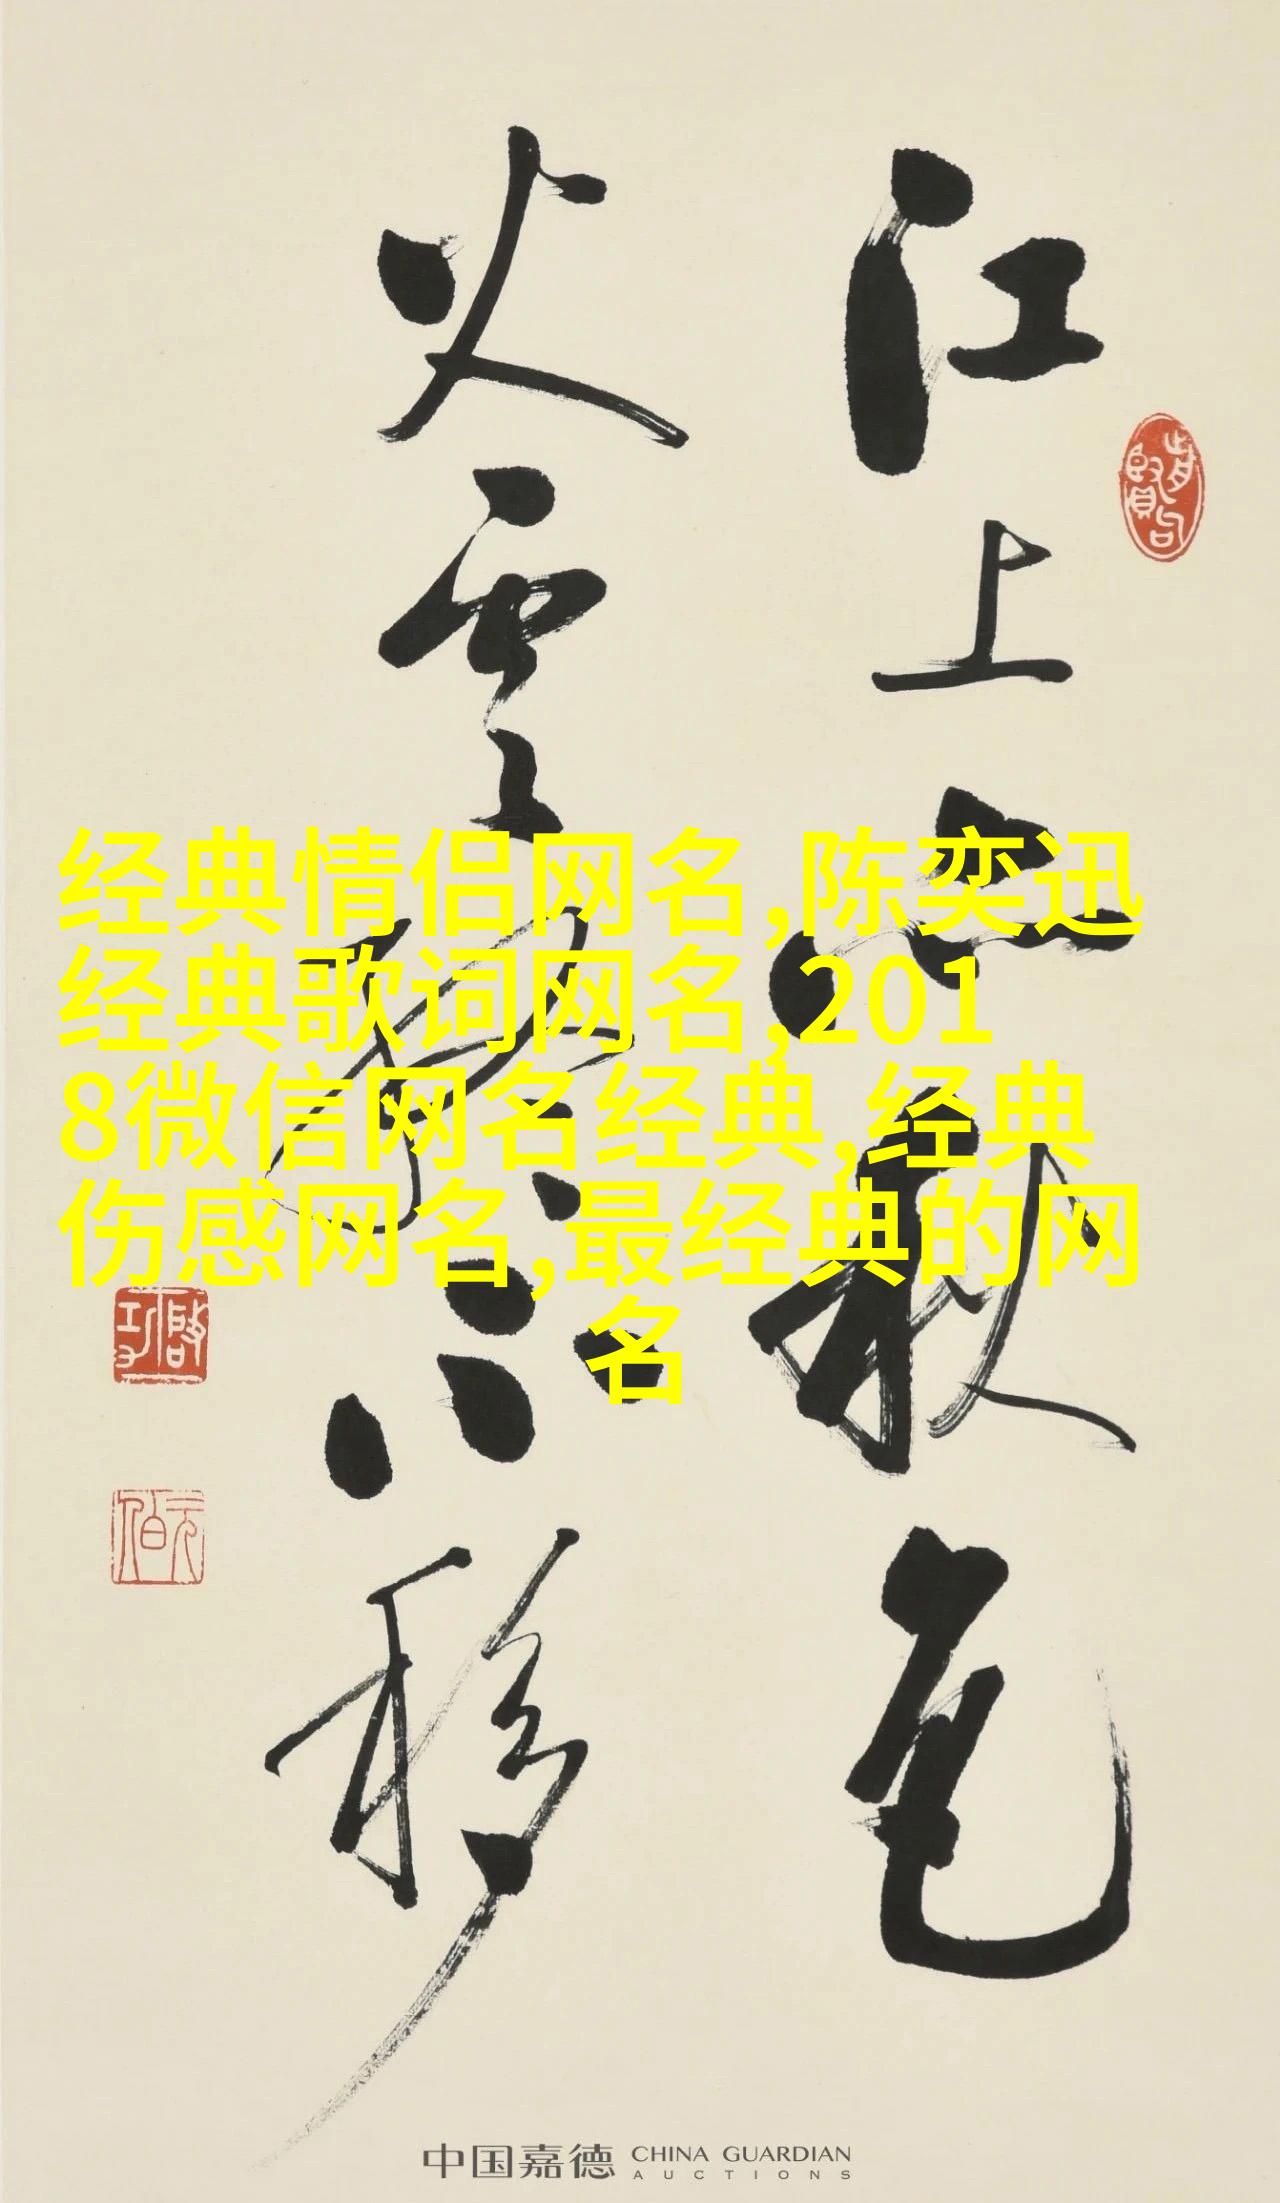 江上亦秋色
火雲終不移
经典情侣网名,陈奕迅
经典歌词网名,201
8微信网名经典,经典
伤感网名,最经典的网
名
啓功
元伯
中国嘉德 CHINA GUARDIAN
AUCTIONS